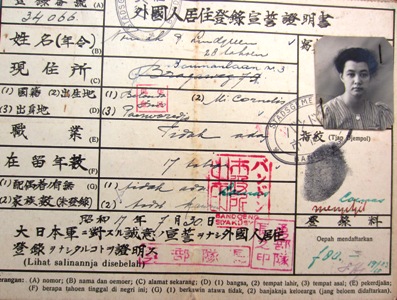 登錄番號
34066 (A)
外國人居住登錄宣誓證明書
姓名(年令) (B)
28 tahoen
現住所 (C)
Bragaweg 79
(1) 國籍 (2) 出生地 (D) (1) Belanda (2) M. Cornelis
(3) 出身地 (3)
職業 (E) Tidak ada
指紋 (Tjap Djempol)
在留年數 (F) 17 tahoen
(1) 配偶者有無 (1) tidak ada
(2) 家族數(未登錄) (G) (2) tidak
バンドン市役所
BANDOENG SIYAKUSHO
登錄料
Oepah mendaftarkan
f 80.
昭和17年7月30日
大日本軍ニ對スル誠意ノ宣誓ヲナシ外國人居住
登錄ヲナシタルコトヲ證明ス
(Lihat salinannja disebelah)
erangan: (A) nomor; (B) nama dan oemoer; (C) alamat sekarang; (D) (1) bangsa, (2) tempat lahir, (3) tempat asal; (E) pekerdjaan;
(F) berapa tahoen tinggal di negri ini; (G) (1) berkawin atawa tidak, (2) banjaknja keloearga (jang beloem didaftarkan).